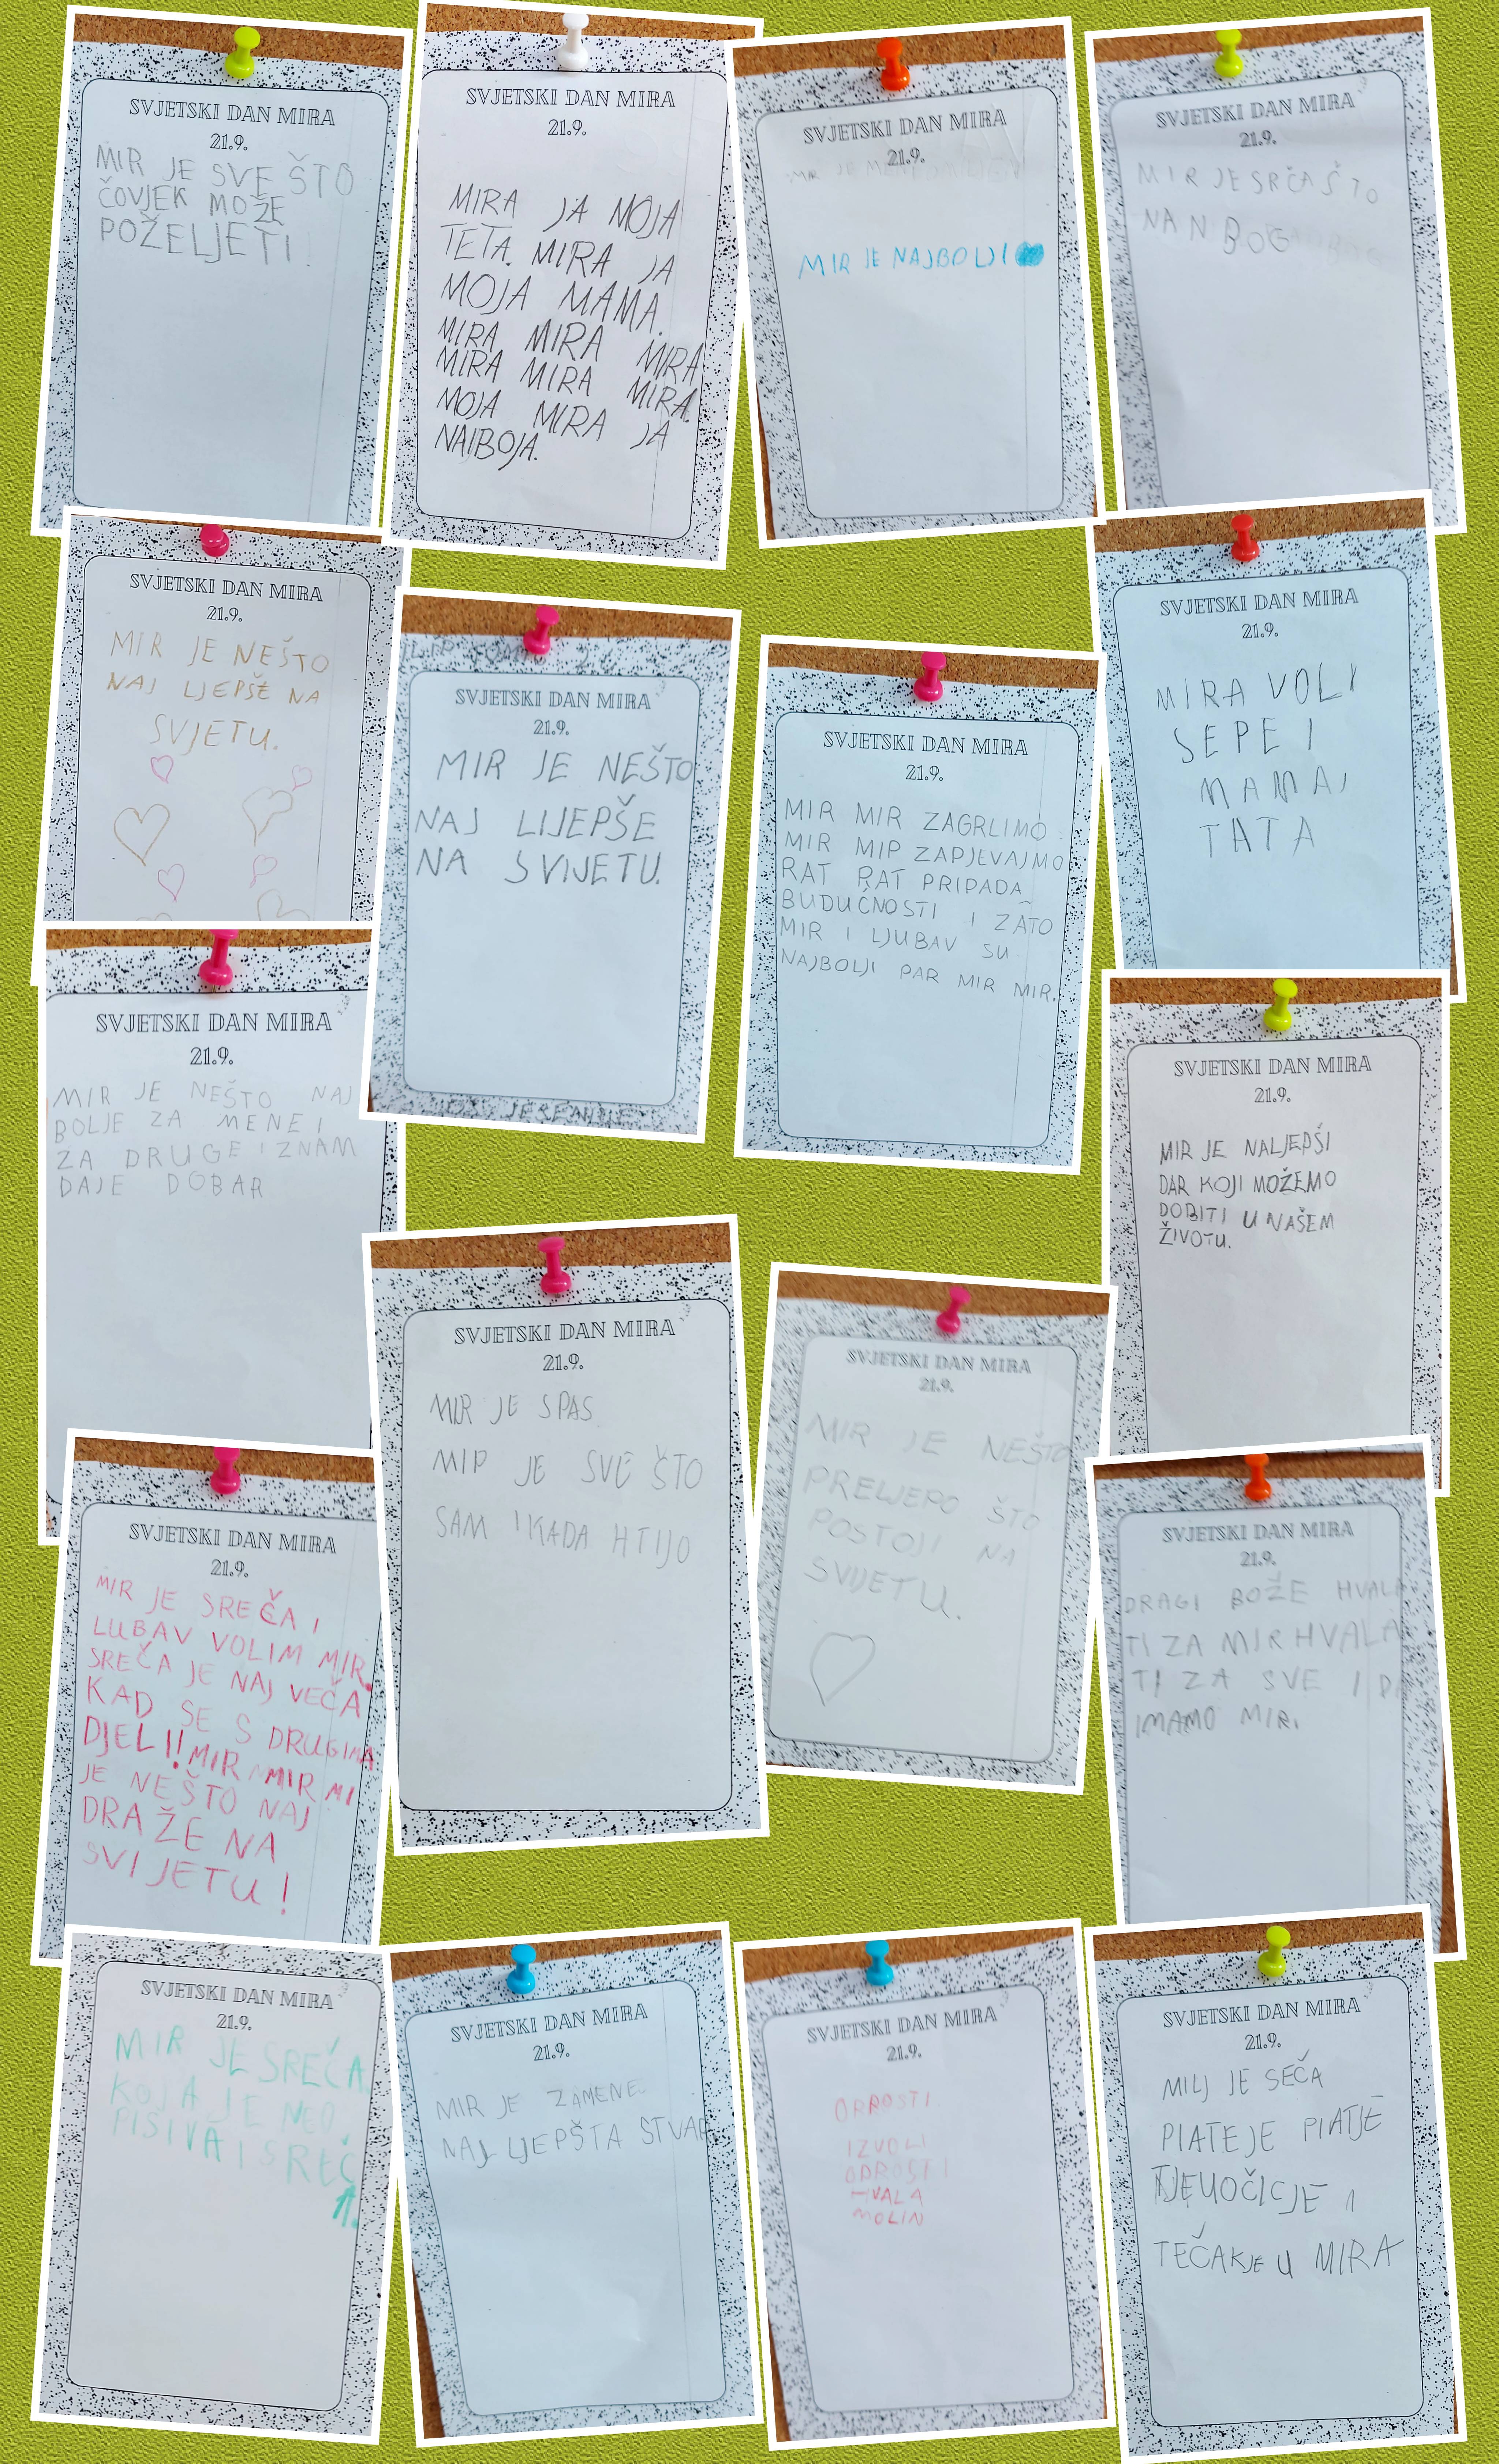 SVJETSKI DAN MIRA
21.9.
MIR JE SVE ŠTO
ČOVJEK MOŽE
POŽELJETI!
SVJETSKI DAN MIRA
21.9.
MIRA JA MOJA
TETA. MIRA JA
MOJA MAMA.
MIRA MIRA MIRA
MIRA MIRA MIRA.
MOJA MIRA JA
NAIBOJA.
SVJETSKI DAN MIRA
21.9.
MIR JE NAJBOLJI
SVJETSKI DAN MIRA
21.9.
MIR JE SRČA ŠTO
NAN BOG
SVJETSKI DAN MIRA
21.9.
MIR JE NEŠTO
NAJ LJEPŠE NA
SVJETU.
SVJETSKI DAN MIRA
21.9.
MIR JE NEŠTO
NAJ LIJEPŠE
NA SVIJETU.
SVJETSKI DAN MIRA
21.9.
MIR MIR ZAGRLIMO
MIR MIP ZAPJEVAJMO
RAT RAT PRIPADA
BUDUĆNOSTI I ZATO
MIR I LJUBAV SU
NAJBOLJI PAR MIR MIR.
SVJETSKI DAN MIRA
21.9.
MIRA VOLI
SEPE I
MAMAJ
TATA
SVJETSKI DAN MIRA
21.9.
MIR JE NEŠTO NAJ
BOLJE ZA MENE I
ZA DRUGE I ZNAM
DAJE DOBAR
SVJETSKI DAN MIRA
21.9.
MIR JE NALJEPŠI
DAR KOJI MOŽEMO
DOBITI U NAŠEM
ŽIVOTU.
SVJETSKI DAN MIRA
21.9.
MIR JE SPAS
MIP JE SVE ŠTO
SAM IKADA HTIJO
SVJETSKI DAN MIRA
21.9.
MIR JE NEŠTO
PRELJEPO ŠTO
POSTOJI NA
SVIJETU.
SVJETSKI DAN MIRA
21.9.
MIR JE SREČA I
LUBAV VOLIM MIR.
SREČA JE NAJ VEČA
KAD SE S DRUGIMA
DJELI! MIR MIR MI
JE NEŠTO NAJ
DRAŽE NA
SVIJETU!
SVJETSKI DAN MIRA
21.9.
DRAGI BOŽE HVALA
TI ZA MIR HVALA
TI ZA SVE I DA
IMAMO MIR.
SVJETSKI DAN MIRA
21.9.
MIR JE SREČA
KOJA JE NEO
PISIVA I SREČ
A.
SVJETSKI DAN MIRA
21.9.
MIR JE ZAMENE
NAJ LJEPŠTA STVAR
SVJETSKI DAN MIRA
21.9.
OPROSTI
IZVOLI
ODROSTI
HVALA
MOLIN
SVJETSKI DAN MIRA
21.9.
MILJ JE SEČA
PIATEJE PIATJE
I
TEČAKJE U MIRA